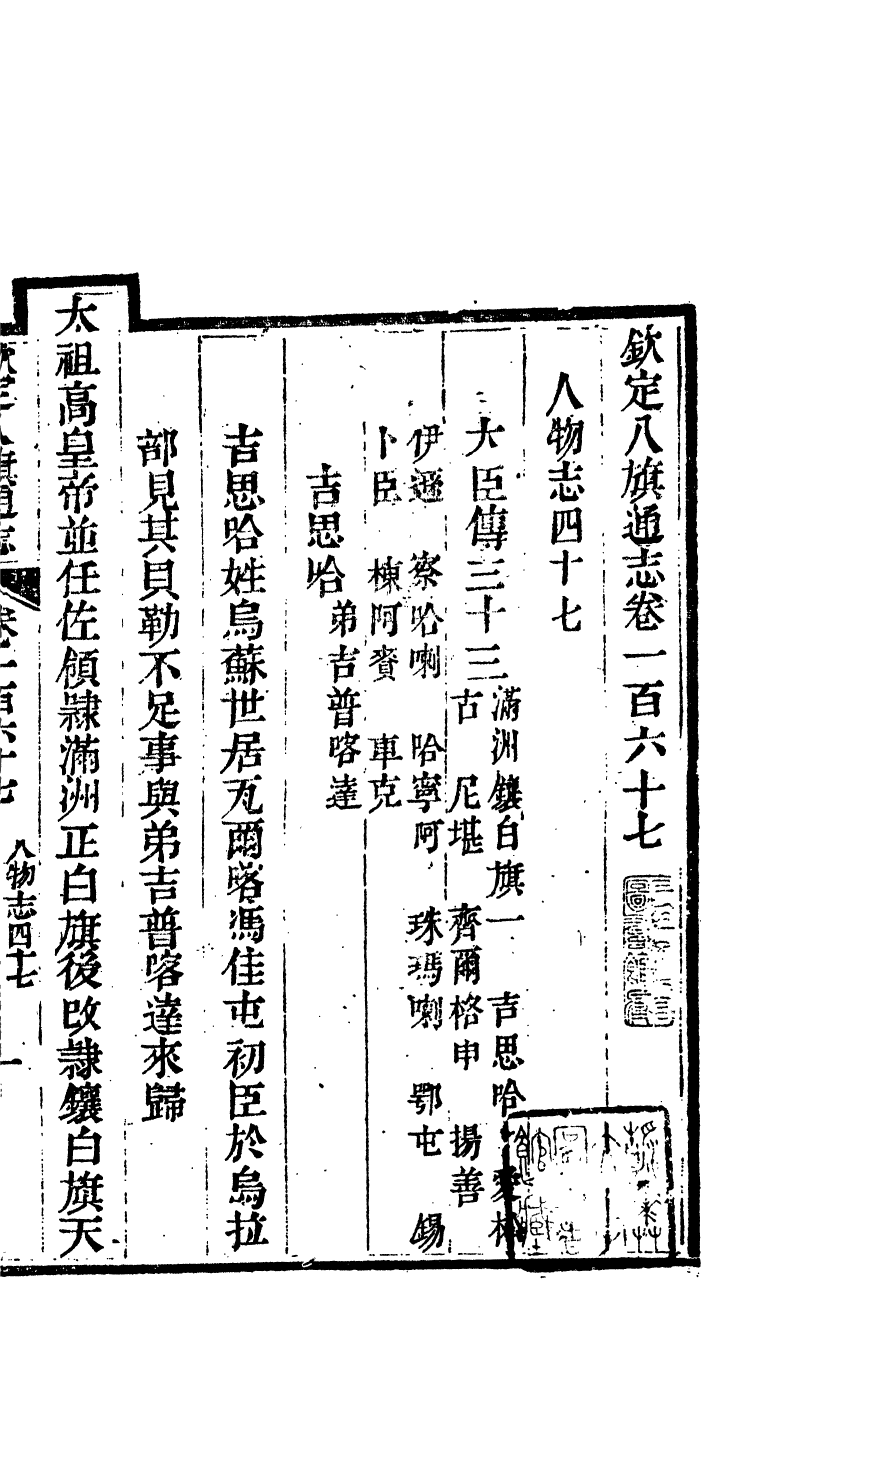 欽定八旗通志卷一百六十七
人物志四十七
大臣傳三十三
滿洲鑲白旗一　吉思哈　愛松
古　尼堪　齊爾格申　揚善
伊遜　察哈喇　哈寧阿　珠瑪喇　鄂屯　錫
卜臣　棟阿賚　車克
吉思哈
弟吉普喀達
吉思哈姓烏蘇世居瓦爾喀馮佳屯初臣於烏拉
部見其貝勒不足事與弟吉普喀達來歸
太祖高皇帝並任佐領隸滿洲正白旗後改隸鑲白旗天
欽定八旗通志
卷一百六十七
人物志四十七
一